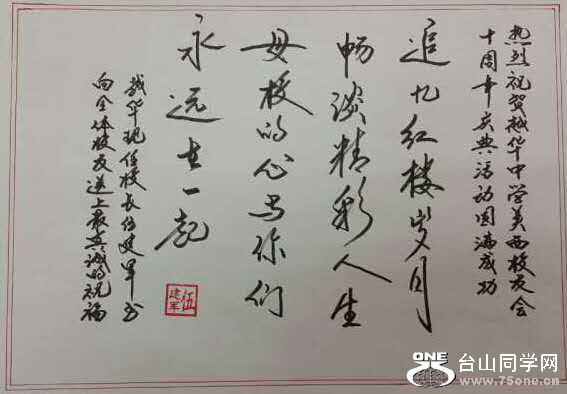 热烈祝贺越华中学美西校友会
十周年庆典活动圆满成功
追忆红楼岁月
畅谈精彩人生
母校的心与你们
永远在一起
越华现任校长伍建军书
向全体校友送上最真诚的祝福
伍建军
ONE
台山同学网
www.75one.cn